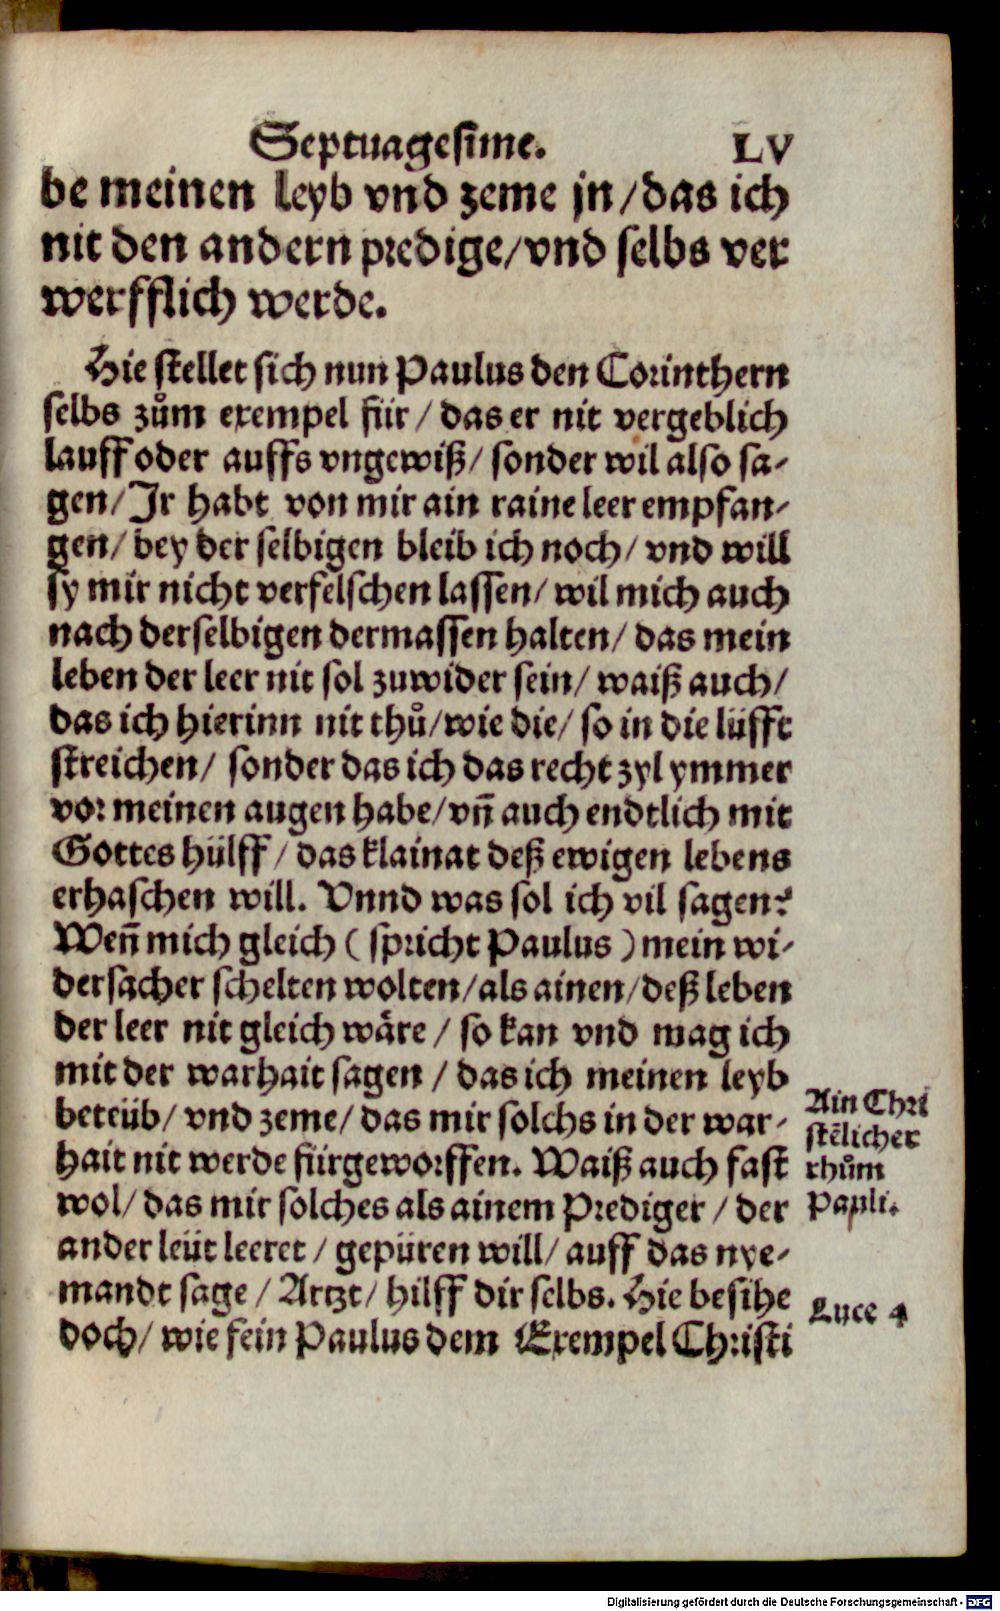 Septuagesime. LV
be meinen leyb vnd zeme jn/das ich
nit den andern predige/vnd selbs ver
werfflich werde.
Hie stellet sich nun Paulus den Corinthern
selbs zům exempel für/das er nit vergeblich
lauff oder auffs vngewiß/sonder wil also sa-
gen/Jr habt von mir ain raine leer empfan-
gen/bey der selbigen bleib ich noch/vnd will
sy mir nicht verfelschen lassen/wil mich auch
nach derselbigen dermassen halten/das mein
leben der leer nit sol zuwider sein/waiß auch/
das ich hierinn nit thů/wie die/so in die lüfft
streichen/sonder das ich das recht zyl ymmer
vor meinen augen habe/vñ auch endtlich mit
Gottes hülff/das klainat deß ewigen lebens
erhaschen will. Vnnd was sol ich vil sagen?
Weñ mich gleich (spricht Paulus) mein wi-
dersacher schelten wolten/als ainen/deß leben
der leer nit gleich wäre/so kan vnd mag ich
mit der warhait sagen/das ich meinen leyb
beteüb/vnd zeme/das mir solchs in der war-
hait nit werde fürgeworffen. Waiß auch fast
wol/das mir solches als ainem Prediger/der
ander leüt leeret/gepüren will/auff das nye-
mandt sage/Artzt/hilff dir selbs. Hie besihe
doch/wie fein Paulus dem Exempel Christi
Ain Chri
stẽlicher
rhům
Pauli.
Luce 4
Digitalisierung gefördert durch die Deutsche Forschungsgemeinschaft - DFG